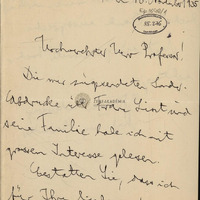 10. Oktober 1935
Hochverehrter Herr Professor!
Die mir zugesendeten Sonder-
abdrucke über Franz Liszt und
seine Familie habe ich mit
grossem Interesse gelesen.
Gestatten Sie, dass ich
für Ihre